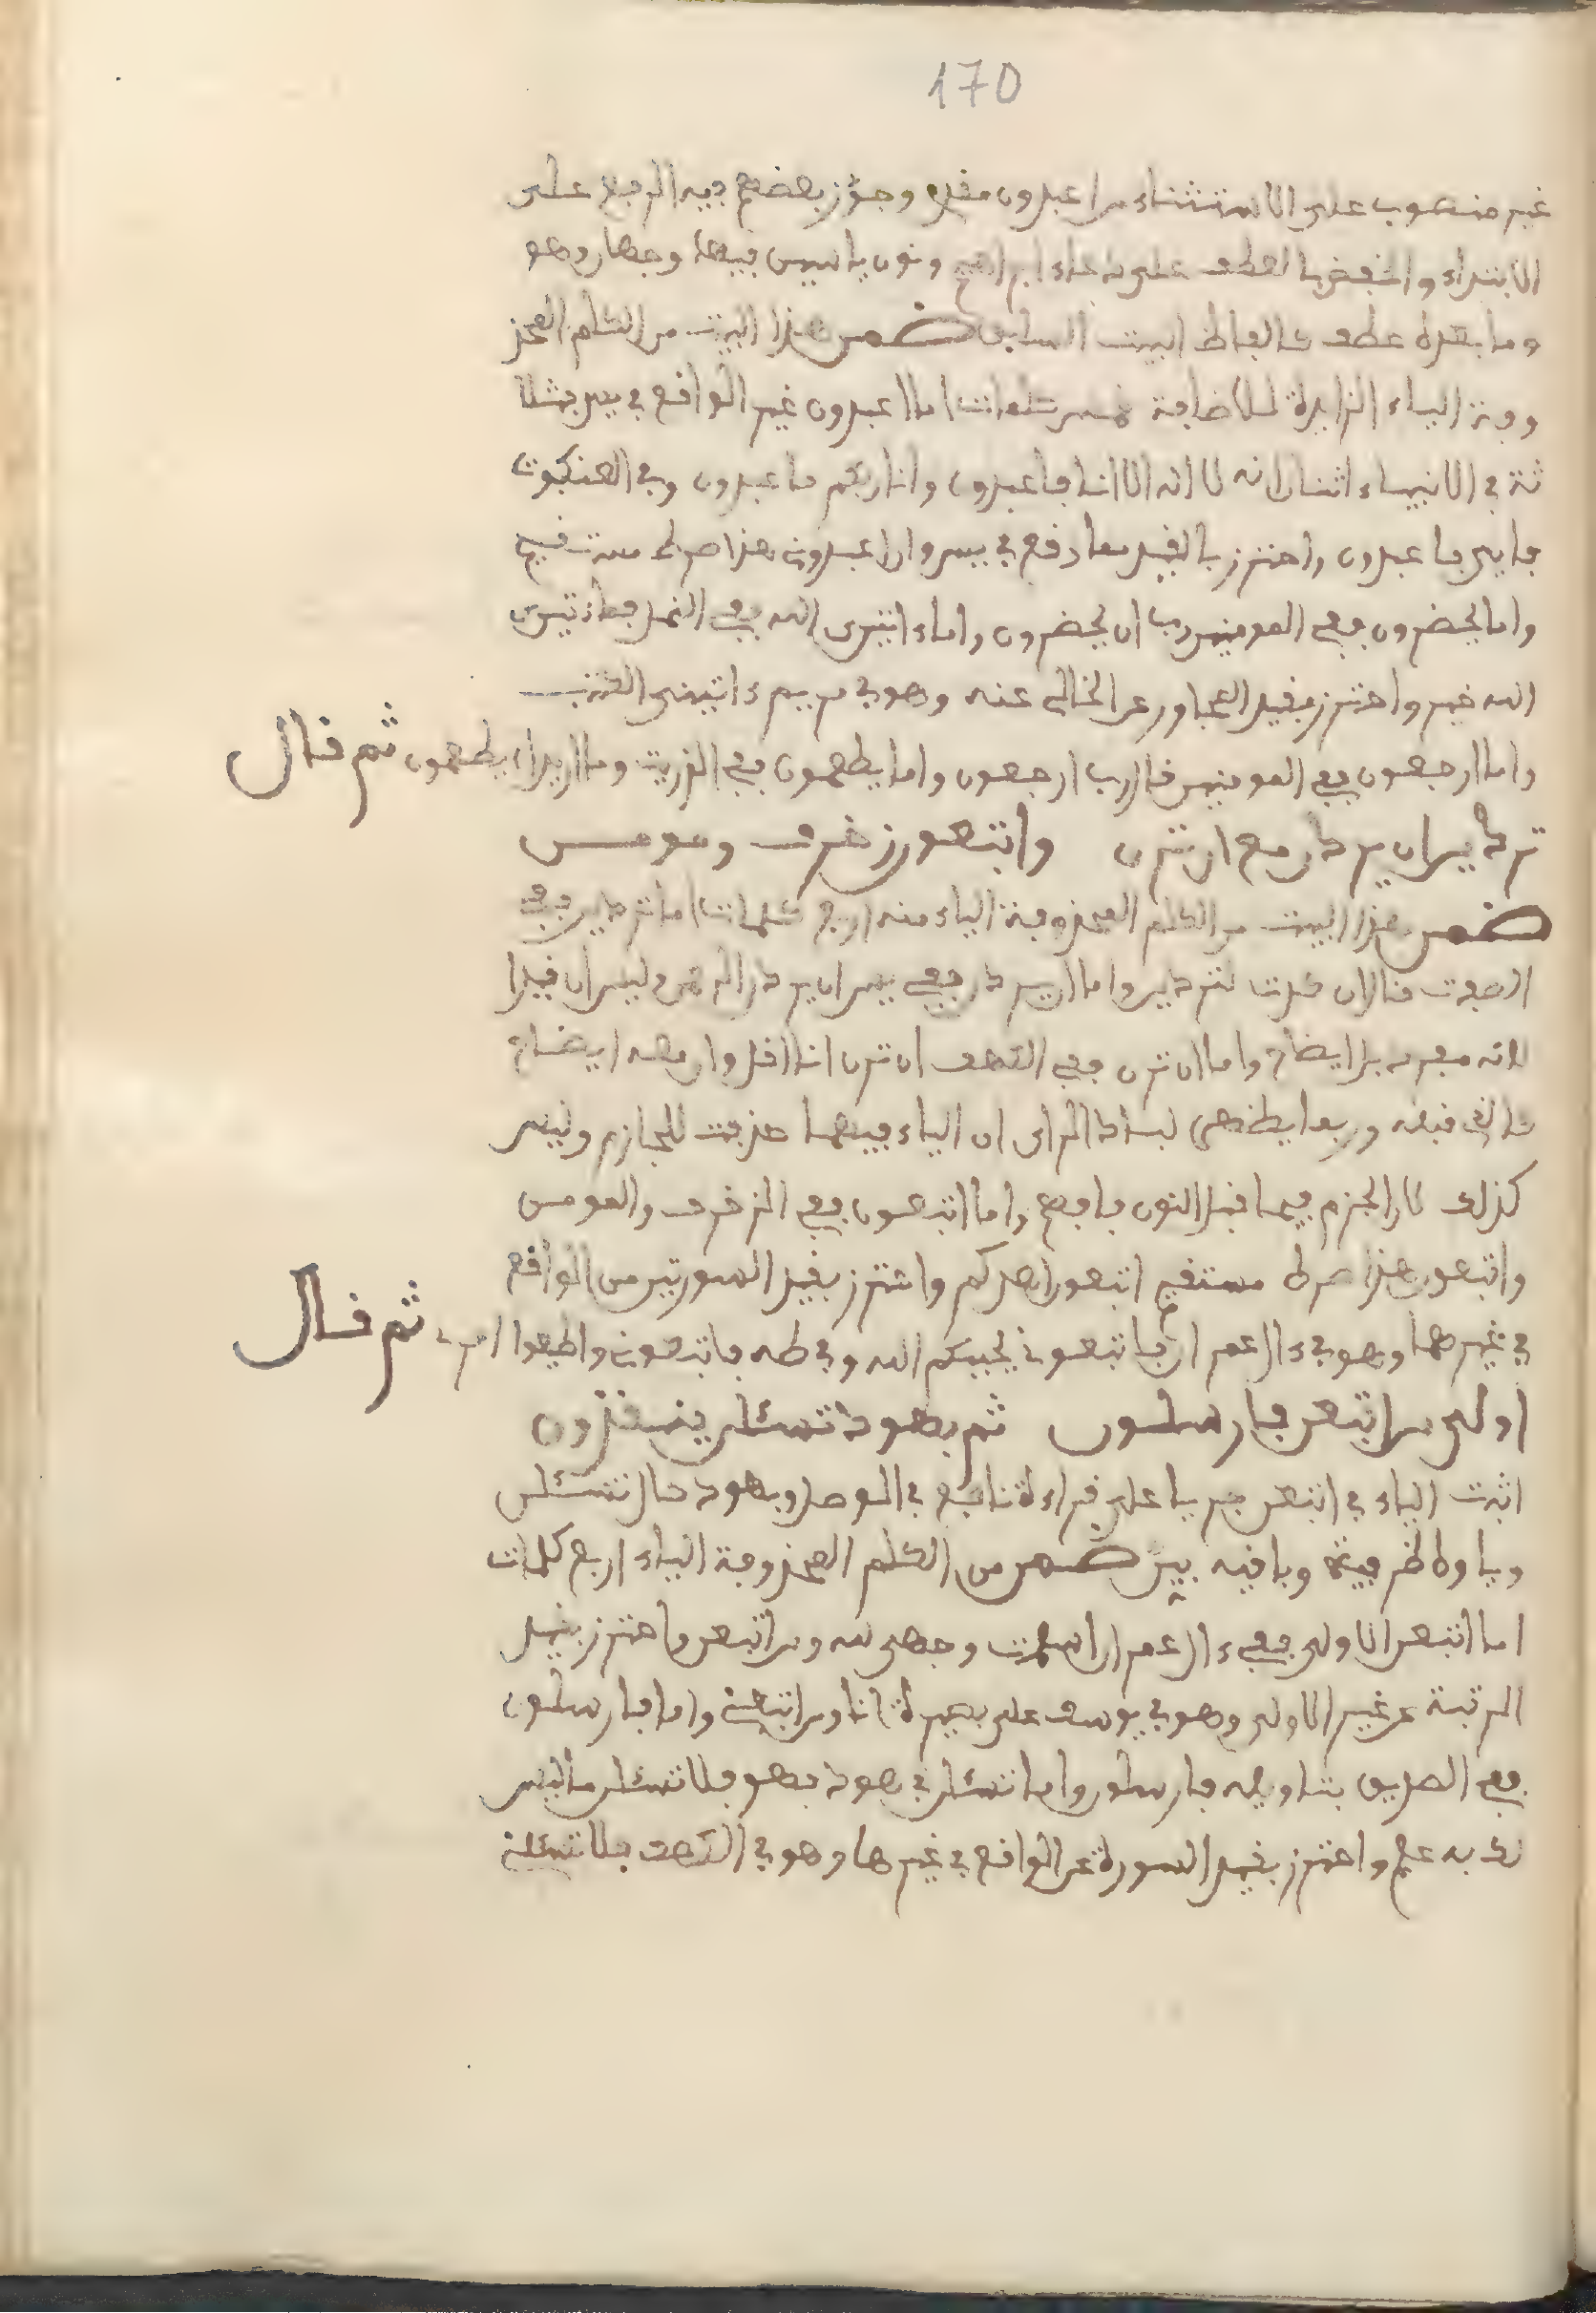 170
غير منصوب على الاستثناء من اعبدون مقدم وجوز بعضهم فيه الرفع على
الابتداء والخفض بالعطف على دعاء ابراهيم ونون ياسين فيهما وجهان وهو
وما بعده عطف كالفاظ البيت السابق ضمن هذا البيت من الكلم المحذ
وفة الياء الزايدة للاضافة خمس كلمات اما اعبدون غير الواقع في يس فثلا
ثة في الانبياء اثنان انه لا اله الا انا فاعبدون وانا ربكم فاعبدون وفي العنكبوت
فايى فاعبدون واحترز بالقيد مما وقع في يس وان اعبدوني هذا صرط مستقيم
واما يحضرون ففي المومنين رب ان يحضرون واما ءاتين الله ففي النمل فما ءاتين
الله خير واحترز بقيد المجاور عن الخالي عنه وهو في مريم ءاتيني الكتب
واما ارجعون ففي المومنين قال رب ارجعون واما يطعمون ففي الذريت وما اريد ان يطعمون ثم قال
تردين ان يردن مع ان ترن واتبعون زخرف ومومن
ضمن هذا البيت من الكلم المحذوفة الياء منه اربع كلمات اما تردين ففي
الصفت قال ان كدت لتردين واما ان يردن ففي يس ان يردن الرحمن وليس ان قيدا
لانه مجرد بل ايضاح واما ان ترن ففي الكهف ان ترن انا اقل وان معه ايضاح
كالتي قبله وربما يظهر لبادئ الراى ان الياء فيهما حذفت للجازم وليس
كذلك لان الجزم فيما قبل النون فافهم واما اتبعون ففي الزخرف والمومن
واتبعون هذا صرط مستقيم اتبعون اهدكم واحترز بقيد السورتين من الواقع
في غيرهما وهو في ءال عمران فاتبعوني يحببكم الله وفي طه فاتبعوني واطيعوا امري ثم قال
اولى من اتبعن فارسلون ثم بهود تسئلن ينقذون
اثبت الياء في اتبعن جريا على قراءة نافع في الوصل وبهود حال تسئلن
وباوه ظرفية وباقيه بين ضمن من الكلم المحذوفة الياء اربع كلمات
اما اتبعن الاولى ففي ءال عمران اسلمت وجهي لله ومن اتبعن واحترز بقيد
المرتبة عن غير الاولى وهو في يوسف على بصيرة انا ومن اتبعني واما فارسلون
ففي الصديق بتاويله فارسلون واما تسئلن في هود فهو فلا تسئلن ما ليس
لك به علم واحترز بقيد السورة عن الواقع في غيرها وهو في الكهف فلا تسئلني